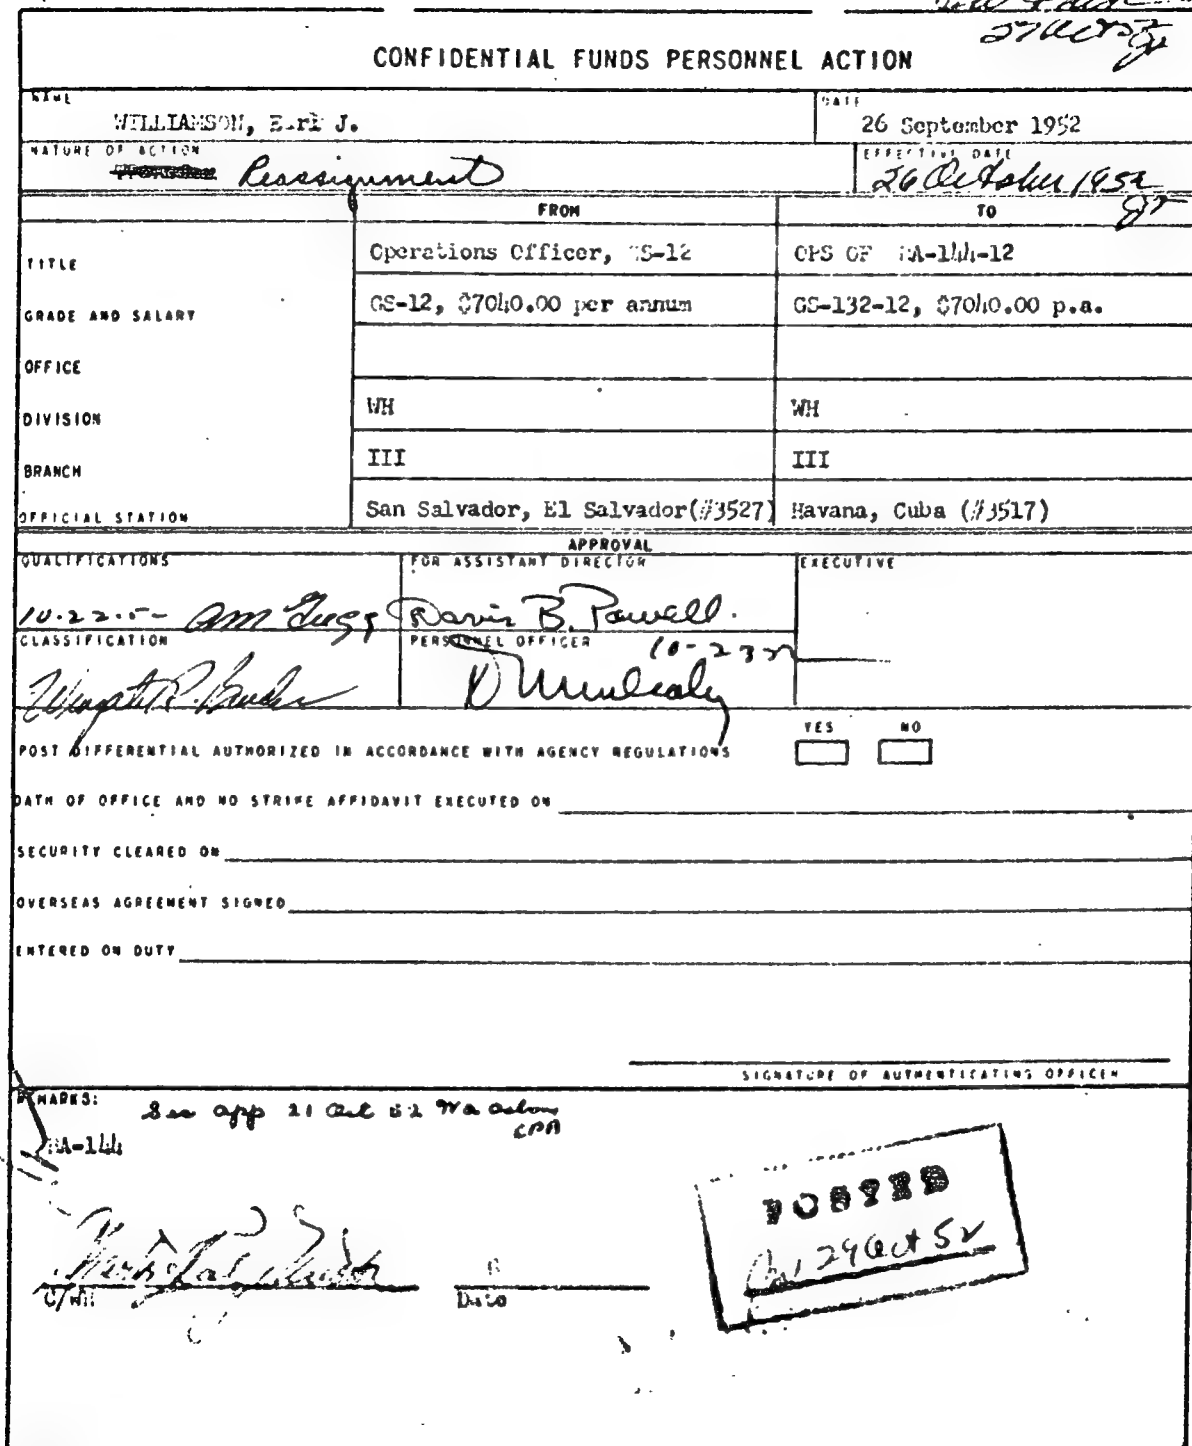 27 Oct 52
CONFIDENTIAL FUNDS PERSONNEL ACTION
NAME DATE
WILLIAMSON, Earl J. 26 September 1952
NATURE OF ACTION EFFECTIVE DATE
Reassignment 26 October 1952
FROM TO
TITLE Operations Officer, GS-12 OPS OF BA-144-12
GRADE AND SALARY GS-12, $7040.00 per annum GS-132-12, $7040.00 p.a.
OFFICE
DIVISION WH WH
BRANCH III III
OFFICIAL STATION San Salvador, El Salvador(#3527) Havana, Cuba (#3517)
APPROVAL
QUALIFICATIONS FOR ASSISTANT DIRECTOR EXECUTIVE
10.22.5- Davis B. Powell.
CLASSIFICATION PERSONNEL OFFICER
10-23
YES NO
POST DIFFERENTIAL AUTHORIZED IN ACCORDANCE WITH AGENCY REGULATIONS
OATH OF OFFICE AND NO STRIKE AFFIDAVIT EXECUTED ON
SECURITY CLEARED ON
OVERSEAS AGREEMENT SIGNED
ENTERED ON DUTY
SIGNATURE OF AUTHENTICATING OFFICER
REMARKS:
See app 21 Oct 52
BA-144
POSTED
29 Oct 52
C/WH Date